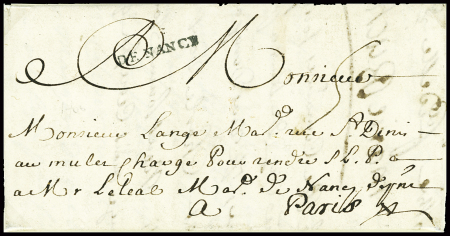 DE NANCY
Monsieur
Monsieur Lange Mad. rue St Denis
au mulet Chargé Pour rendre S.L.P. a
a Mr Leleal Mad. de Nancy
a Paris